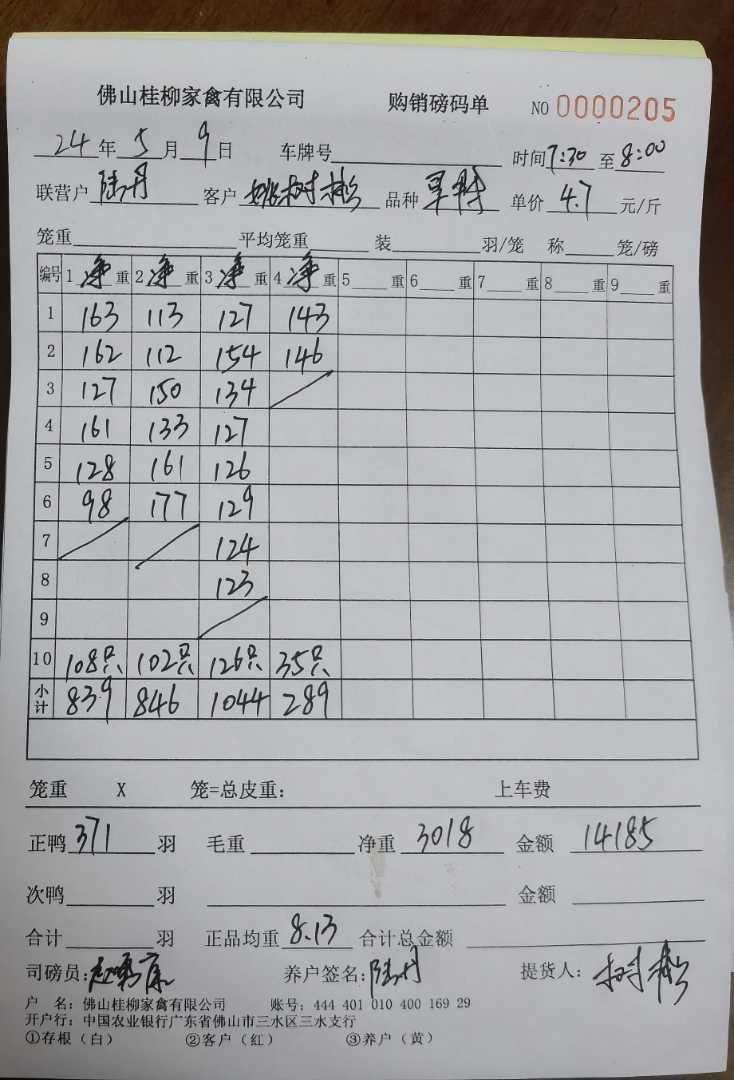 佛山桂柳家禽有限公司 购销磅码单 NO 0000205
24年5月9日 车牌号 时间7:30至8:00
联营户 陆丹 客户 姚树彬 品种 单价 4.7 元/斤
笼重 平均笼重 装 羽/笼 称 笼/磅
编号 1 净 重 2 净 重 3 净 重 4 净 重 5 重 6 重 7 重 8 重 9 重
1 163 113 127 143
2 162 112 154 146
3 127 150 134
4 161 133 127
5 128 161 126
6 98 177 129
7 124
8 123
9
10 108只 102只 126只 35只
小计 839 846 1044 289
笼重 X 笼=总皮重: 上车费
正鸭 371 羽 毛重 净重 3018 金额 14185
次鸭 羽 金额
合计 羽 正品均重 8.13 合计总金额
司磅员: 养户签名: 陆丹 提货人: 树彬
户 名: 佛山桂柳家禽有限公司 账号: 444 401 010 400 169 29
开户行: 中国农业银行广东省佛山市三水区三水支行
①存根(白) ②客户(红) ③养户(黄)